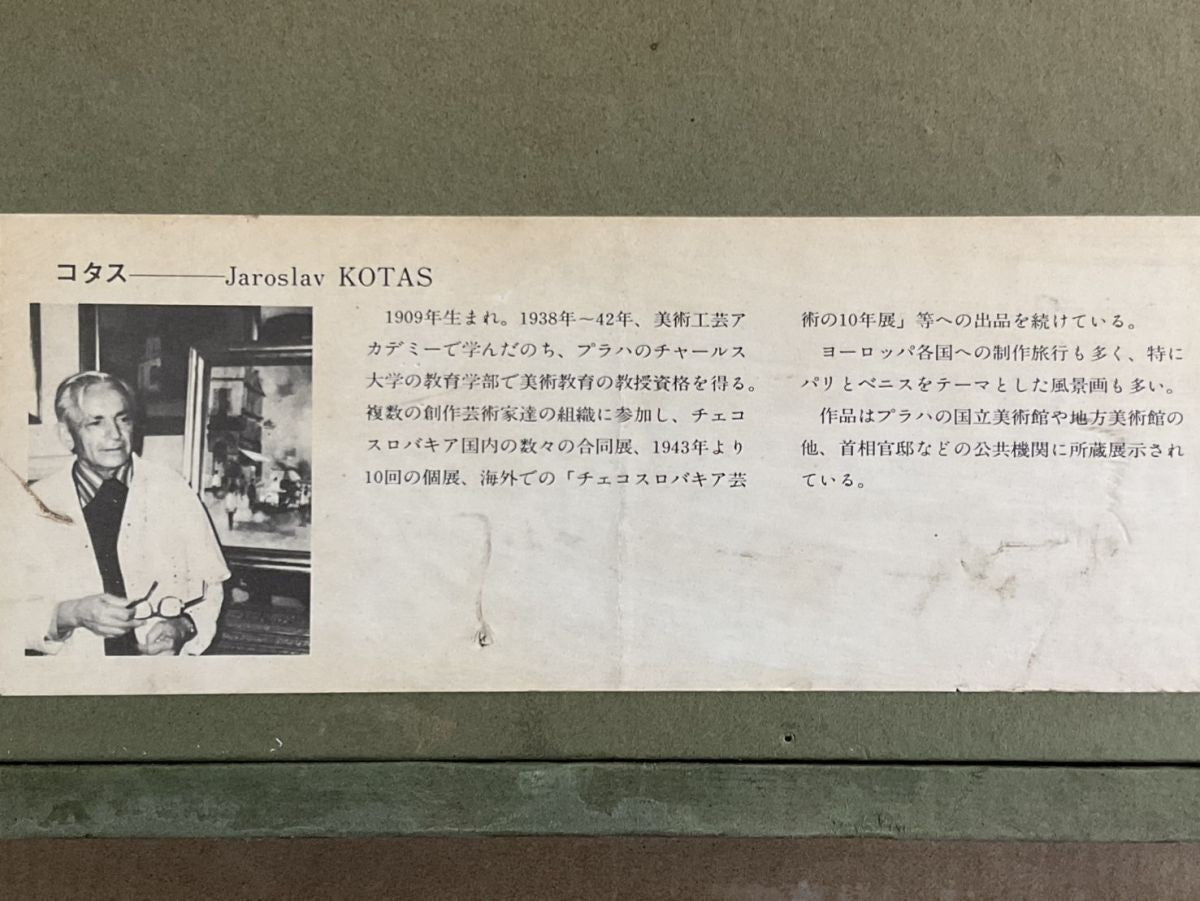 コタス――――Jaroslav KOTAS
1909年生まれ。1938年～42年、美術工芸ア
カデミーで学んだのち、プラハのチャールス
大学の教育学部で美術教育の教授資格を得る。
複数の創作芸術家達の組織に参加し、チェコ
スロバキア国内の数々の合同展、1943年より
10回の個展、海外での「チェコスロバキア芸
術の10年展」等への出品を続けている。
ヨーロッパ各国への制作旅行も多く、特に
パリとベニスをテーマとした風景画も多い。
作品はプラハの国立美術館や地方美術館の
他、首相官邸などの公共機関に所蔵展示され
ている。